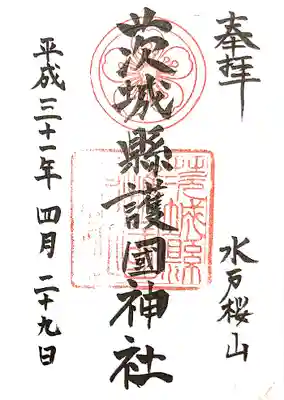 奉拝
水戸桜山
茨城縣護國神社
茨城縣
平成三十一年四月二十九日